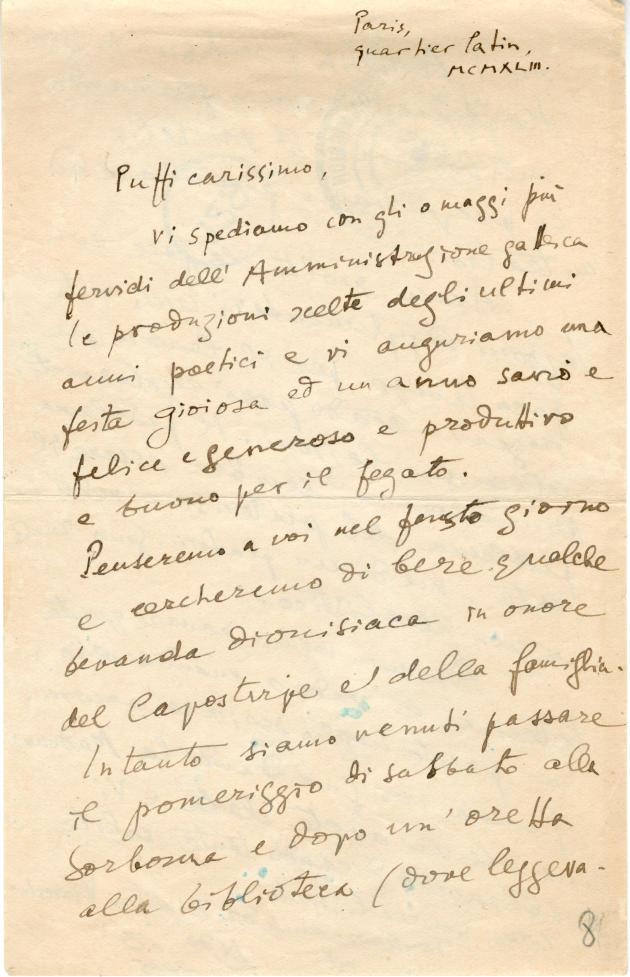 Paris,
quartier latin,
MCMXLIII.
Puffi carissimo,
vi spediamo con gli omaggi più
fervidi dell'Amministrazione gattesca
le produzioni scelte degli ultimi
anni poetici e vi auguriamo una
festa gioiosa ed un anno savio e
felice e generoso e produttivo
e buono per il fegato.
Penseremo a voi nel fausto giorno
e cercheremo di bere qualche
bevanda dionisiaca in onore
del Capostirpe e della famiglia.
Intanto siamo venuti passare
il pomeriggio di sabbato alla
Sorbonna e dopo un'oretta
alla biblioteca (dove leggeva-
8